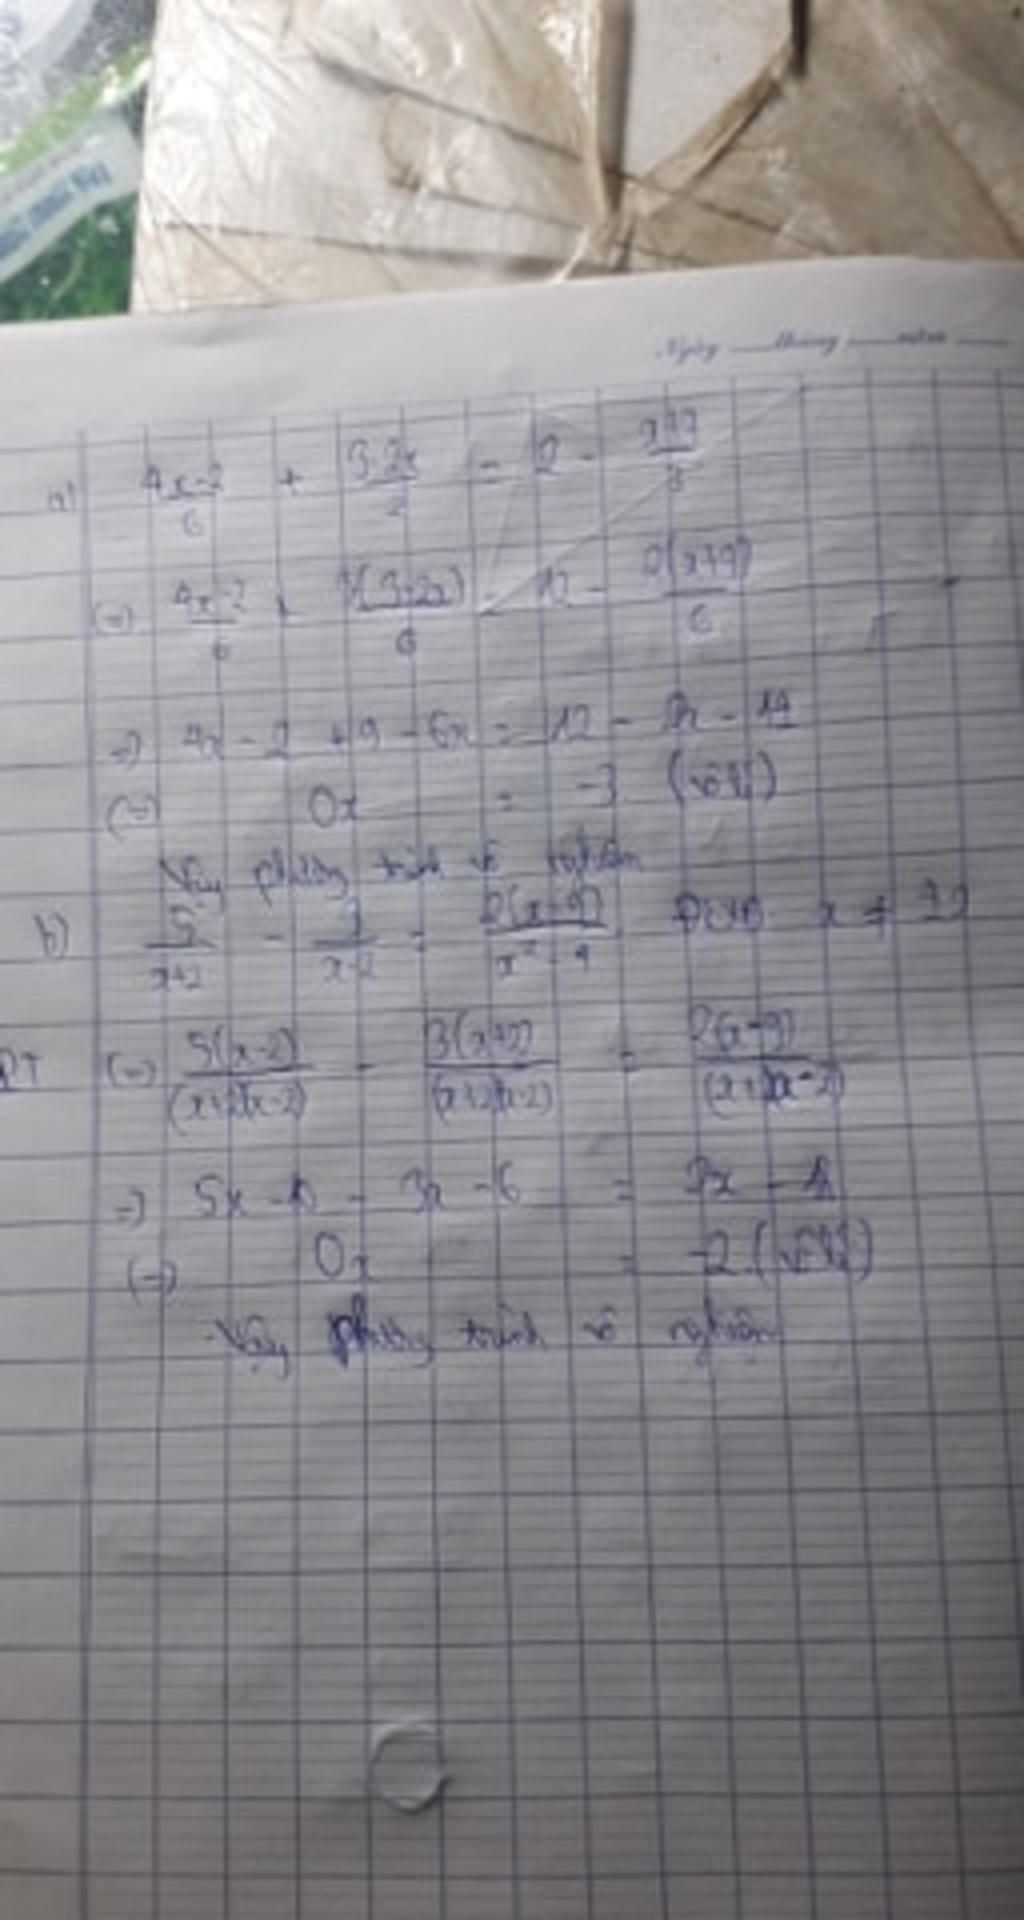 Ngày tháng năm
a) 4x-2/6 + 3-2x/2 = 2 - x+7/3
(=) 4x-2/6 + 3(3-2x)/6 = 12 - 2(x+7)/6
=) 4x - 2 + 9 - 6x = 12 - 2x - 14
(=) 0x = -3 (vô lí)
Vậy phương trình vô nghiệm
b) 5/x+2 - 3/x-2 = 2(x-9)/x²-4
PT (=) 5(x-2)/(x+2)(x-2) - 3(x+2)/(x+2)(x-2) = 2(x-9)/(x+2)(x-2)
=) 5x - 10 - 3x - 6 = 2x - 18
(=) 0x = -2 (vô lí)
Vậy phương trình vô nghiệm